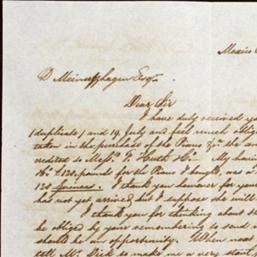 Mexico
D Meinertzhagen Esqr.
Dear Sir
I have duly received yo
(duplicate) and 19 July and feel much oblig
taken in the purchase of the Piano &c. the am
credited to Messrs. F. Huth & Co. My having
£125. pound for the Piano I bought, was a
125 Guineas. I thank you however for your
has not yet arrived, but I suppose she will
I thank you for thinking about the
be obliged by your remembering to send
should be an opportunity. When next
tell Mr. to make me a very